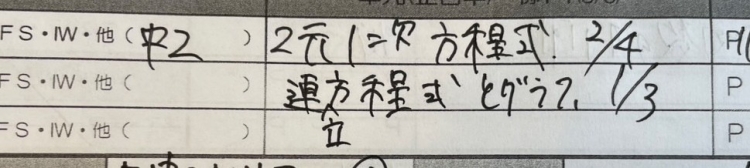 FS・IW・他（中2）2元1次方程式. 2/4 P
FS・IW・他（　）連方程式とグラフ. 1/3 P
FS・IW・他（　）立 P